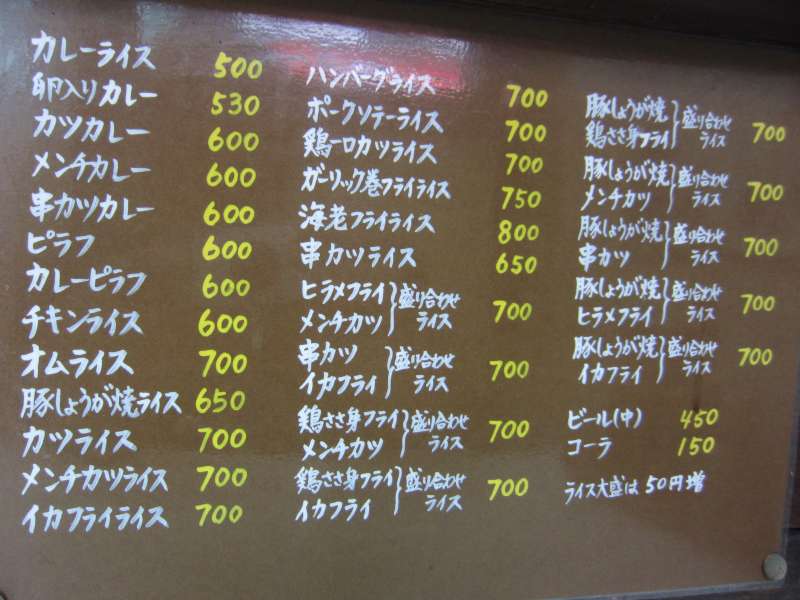 カレーライス 500
卵入りカレー 530
カツカレー 600
メンチカレー 600
串カツカレー 600
ピラフ 600
カレーピラフ 600
チキンライス 600
オムライス 700
豚しょうが焼ライス 650
カツライス 700
メンチカツライス 700
イカフライライス 700
ハンバーグライス 700
ポークソテーライス 700
鶏一口カツライス 700
ガーリック巻フライライス 750
海老フライライス 800
串カツライス 650
ヒラメフライ
メンチカツ
盛り合わせ
ライス
700
串カツ
イカフライ
盛り合わせ
ライス
700
鶏ささ身フライ
メンチカツ
盛り合わせ
ライス
700
鶏ささ身フライ
イカフライ
盛り合わせ
ライス
700
豚しょうが焼
鶏ささ身フライ
盛り合わせ
ライス
700
豚しょうが焼
メンチカツ
盛り合わせ
ライス
700
豚しょうが焼
串カツ
盛り合わせ
ライス
700
豚しょうが焼
ヒラメフライ
盛り合わせ
ライス
700
豚しょうが焼
イカフライ
盛り合わせ
ライス
700
ビール(中) 450
コーラ 150
ライス大盛は50円増